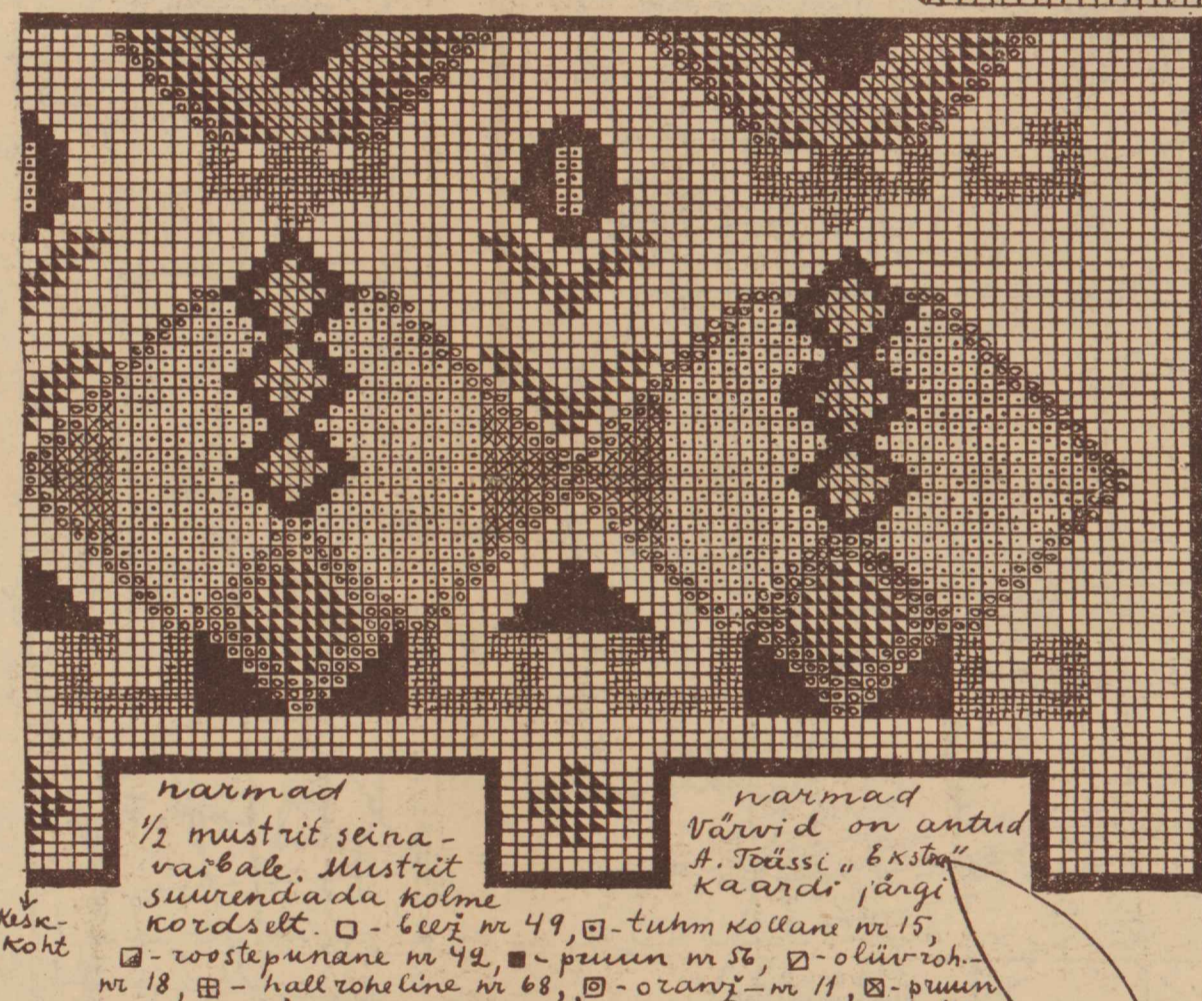 narmad
1/2 mustrit seina-
vaibale. Mustrit
suurendada kolme
kordselt. □ - beež nr 49, ⊡ - tuhm kollane nr 15,
◪ - roostepunane nr 42, ■ - pruun nr 56, ⧄ - olüvroh.-
nr 18, ⊞ - hallroheline nr 68, ⊡ - oranž - nr 11, ⊠ - pruun
narmad
Värvid on antud
A. Trüssi „Ekstra"
kaardi järgi
Kesk-
koht